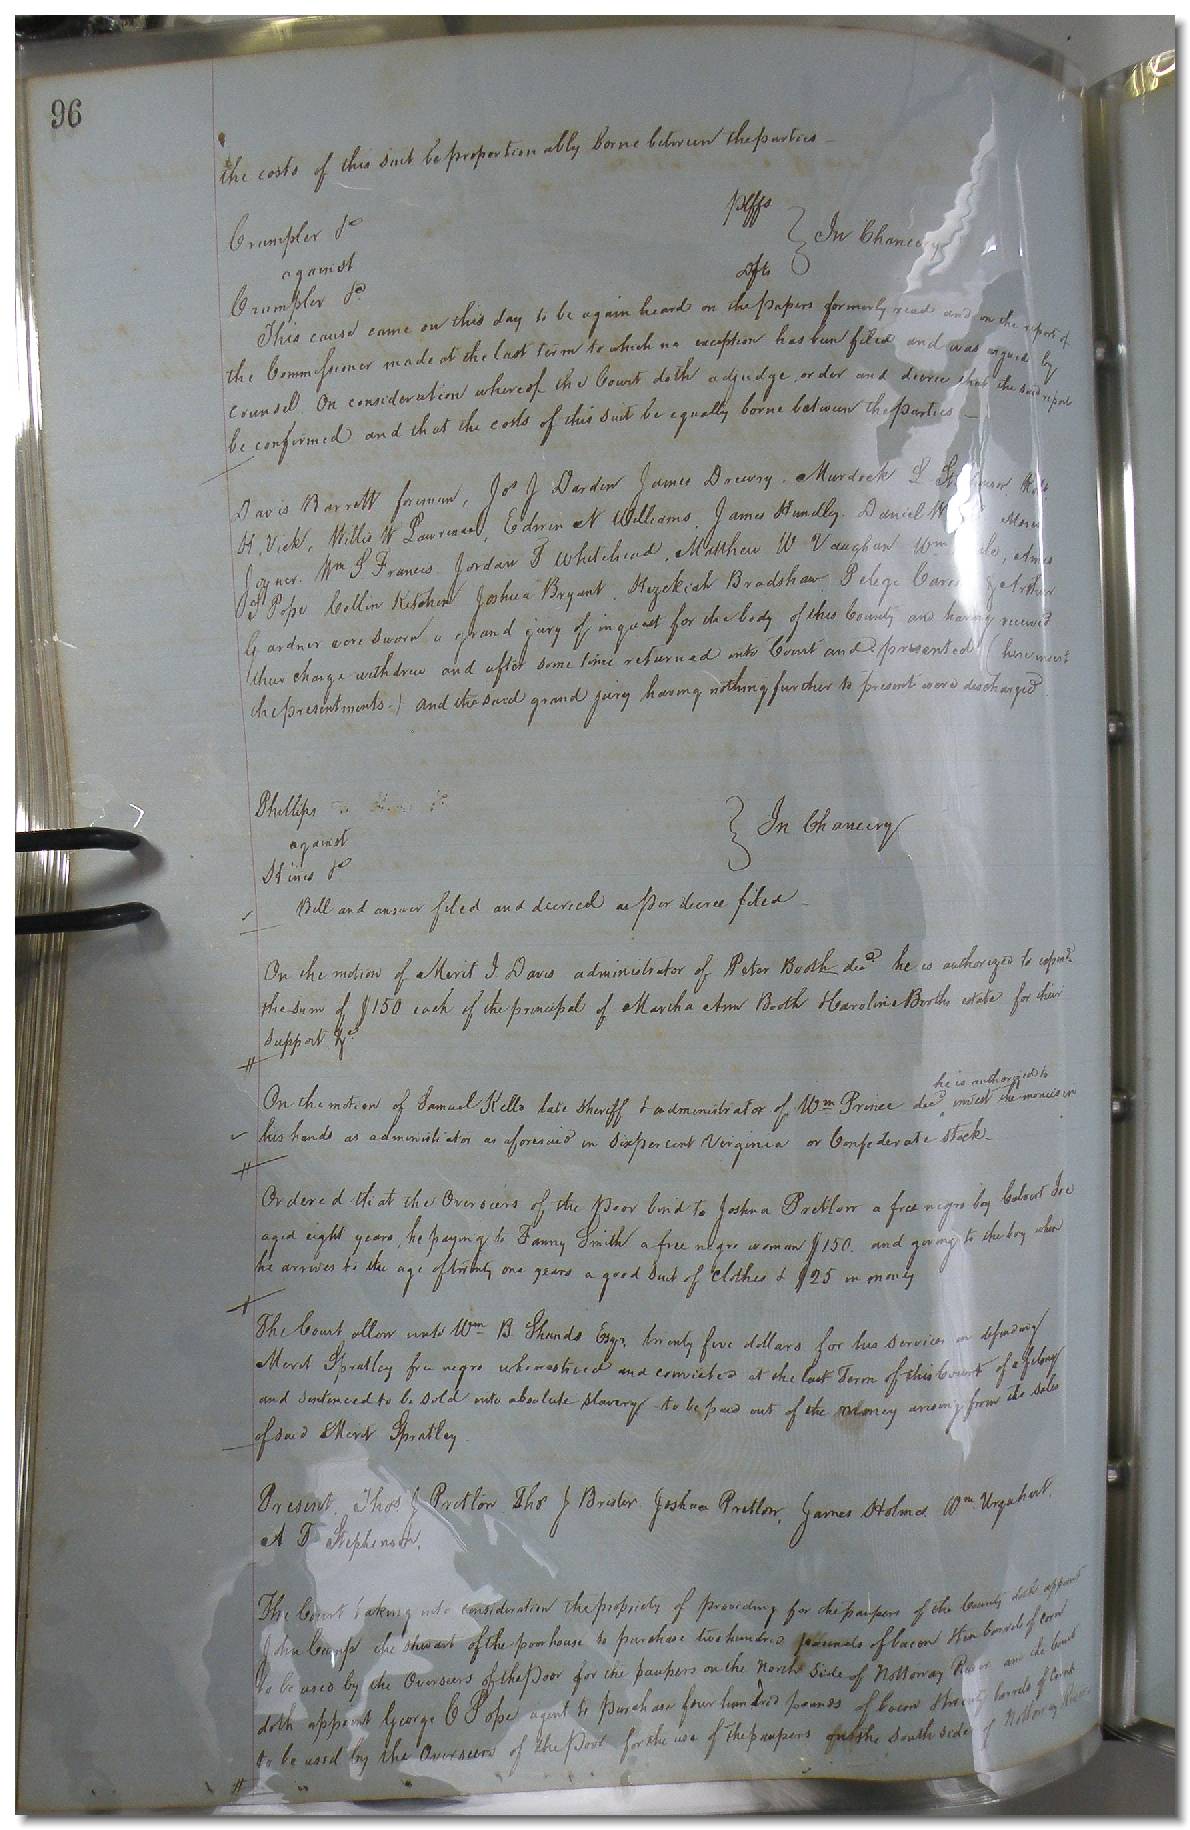 96
the costs of this suit be proportionably borne between the parties
Crumpler &c plffs
against In Chancery
Crumpler &c dfts
This cause came on this day to be again heard on the papers formerly read and on the report of
the Commissioner made at the last term to which no exception has been filed and was argued by
counsel. On consideration whereof the Court doth adjudge order and decree that the said report
be confirmed and that the costs of this suit be equally borne between the parties
Davis Barrett foreman, Jos J Darden James Drewry. Murdock L
H. Vick, Willis W Lawrence, Edwin N Williams, James Hundley. Daniel W
Joyner. Wm S Francis Jordan T Whitehead, Matthew W Vaughan Wm
Pope Collin Kitchen Joshua Bryant, Hezekiah Bradshaw Pelege & Arthur
Gardner were sworn a grand jury of inquest for the body of this County and having received
their charge withdrew and after some time returned into Court and presented (here insert
the presentments) and the said grand jury having nothing further to present were discharged
Phillips
against In Chancery
&c
Bill and answer filed and decreed as per decree filed
On the motion of Merit J Davis administrator of Peter Booth decd he is authorized to expend
the sum of $150 each of the principal of Martha Ann Booth & Caroline Booths estate for their
support &c
On the motion of Samuel Kello late Sheriff & administrator of Wm Prince decd he is authorized to invest the monies in
his hands as administrator as aforesaid in six percent Virginia or Confederate stock
Ordered that the Overseers of the Poor bind to Joshua Pretlow a free negro boy
aged eight years, he paying to Fanny Smith a free negro woman $150. and giving to the boy when
he arrives to the age of twenty one years a good suit of clothes & $25 in money
The Court allow unto Wm B. Shands Esqr. twenty five dollars for his services in defending
Merit Spratley free negro who was tried and convicted at the last Term of this Court of a felony
and sentenced to be sold into absolute slavery to be paid out of the money arising from the sales
of said Merit Spratley
Present, Thos J Pretlow Thos J Brister. Joshua Pretlow, James Holmes Wm Urquhart.
A T Stephenson.
The Court taking into consideration the propriety of providing for the paupers of the County doth appoint
John Camp the steward of the poorhouse to purchase two hundred pounds of bacon & ten barrels of corn
to be used by the Overseers of the Poor for the paupers on the North Side of Nottoway River and the Court
doth appoint George C Pope agent to purchase four hundred pounds of bacon & twenty barrels of corn
to be used by the Overseers of the Poor for the use of the paupers on the South side of Nottoway River